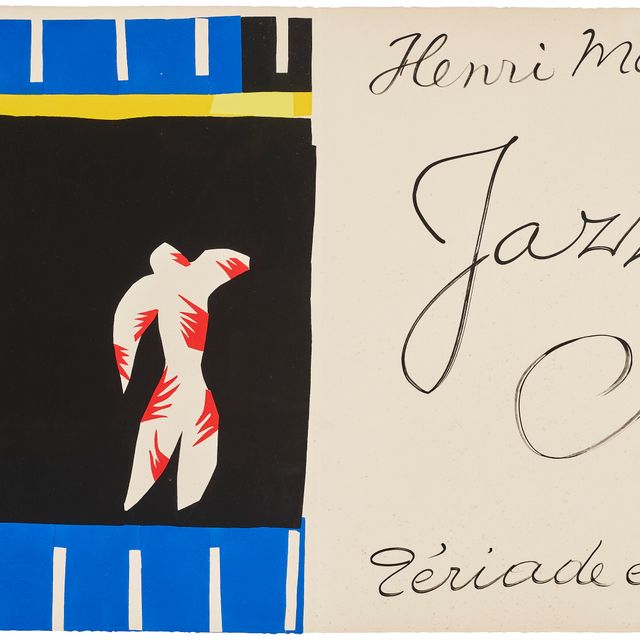 Henri Ma
Jazz
Tériade e